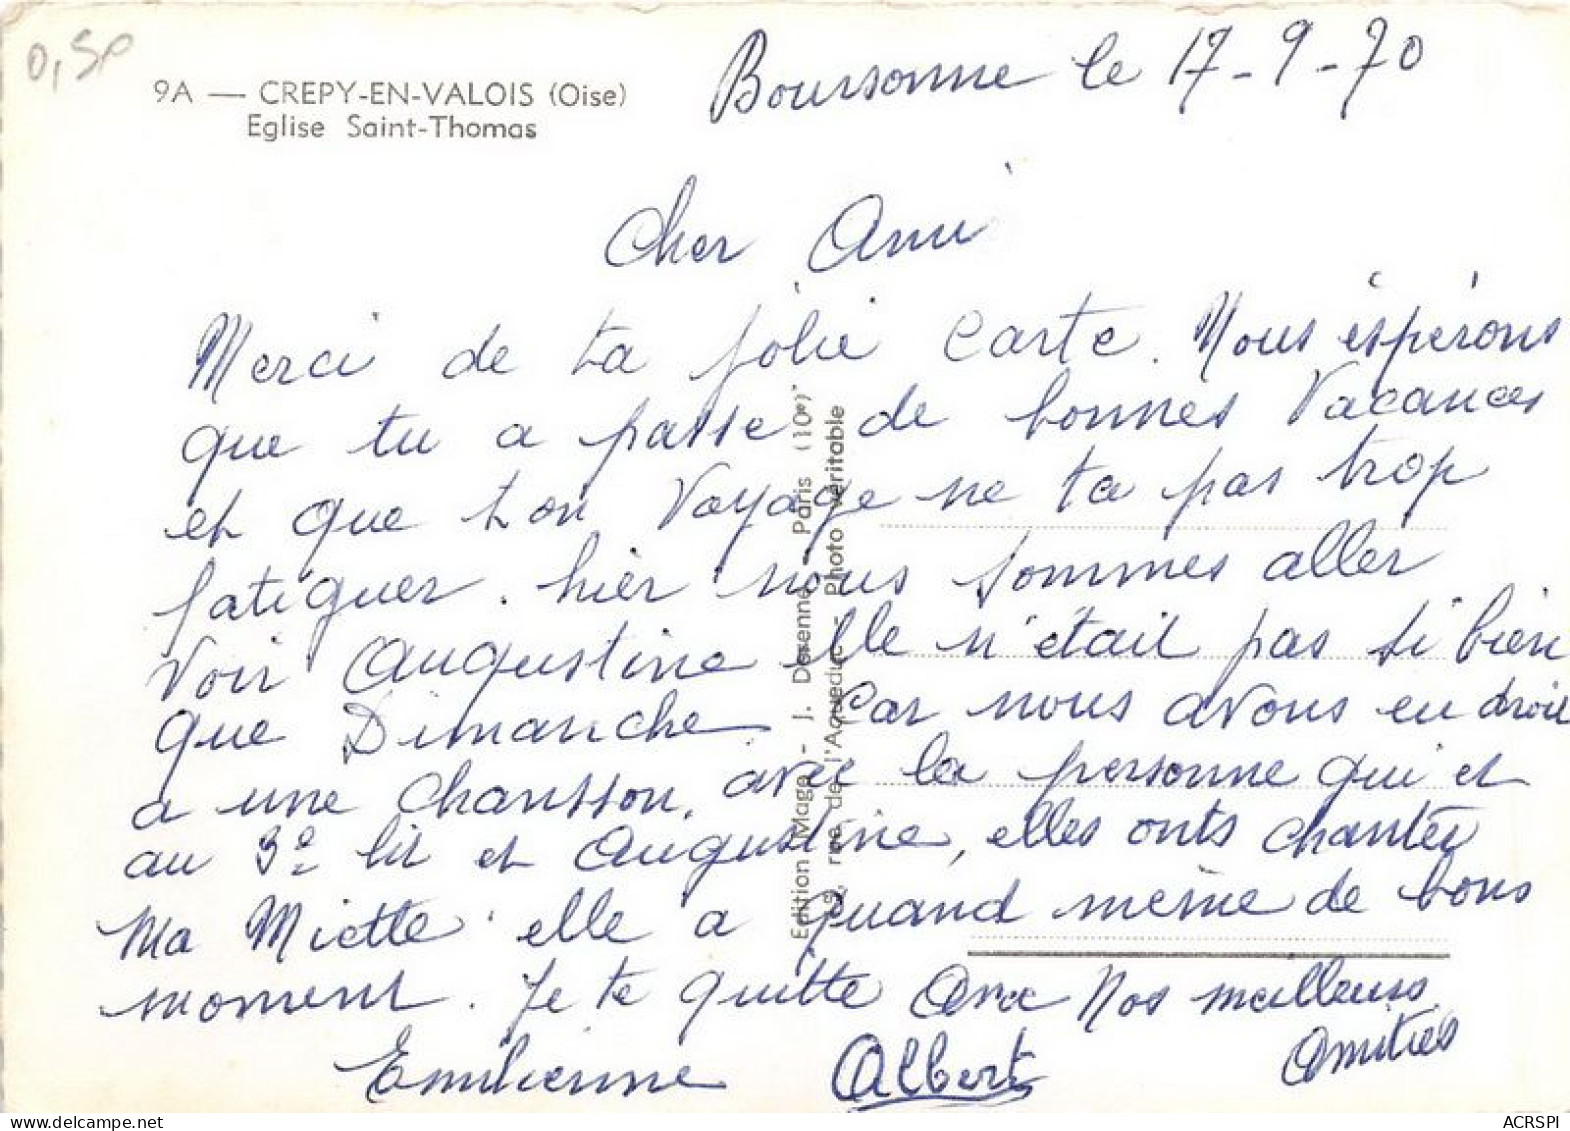 0,50
9A — CREPY-EN-VALOIS (Oise)
Eglise Saint-Thomas
Boursonne le 17-9-70
Cher Ami
Merci de ta jolie carte. Nous éspérons
que tu a passe de bonnes Vacances
et que ton Voyage ne ta pas trop
fatiguer. hier nous sommes aller
Voir Augustine elle n'était pas si bien
que Dimanche car nous avons eu droit
a une chansson, avec la personne qui et
au 3e lit et Augustine, elles onts chanter
Ma Miette elle a quand même de bons
moment. Je te quitte avec Nos meilleurs
Amitiés
Emilienne Albert
Edition "Mage - J. Dorenne - Paris (10e)"
rue de l'Aqueduc - Photo véritable
ACRSPI